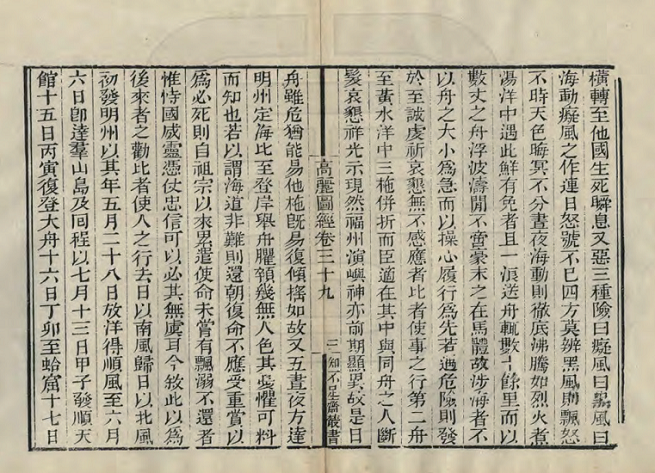 橫轉至他國生死瞬息又惡三種險曰癡風曰黑風曰
海動癡風之作連日怒號不已四方莫辨黑風則飄怒
不時天色晦冥不分晝夜海動則徹底沸騰如烈火煮
湯洋中遇此鮮有免者且一浪送舟輒數十餘里而以
數丈之舟浮波濤閒不啻毫末之在馬體故涉海者不
以舟之大小爲急而以操心履行爲先若遇危險則發
於至誠虔祈哀懇無不感應者比者使事之行第二舟
至黃水洋中三柂併折而臣適在其中與同舟之人斷
髮哀懇祥光示現然福州演嶼神亦前期顯異故是日
舟雖危猶能易他柂旣易復傾搖如故又五晝夜方達
高麗圖經卷三十九
三
知不足齋叢書
明州定海比至登岸舉舟臞顇幾無人色其憂懼可料
而知也若以謂海道非難則還朝復命不應受重賞以
爲必死則自祖宗以來累遣使命未嘗有飄溺不還者
惟恃國威靈憑仗忠信可以必其無虞耳今敘此以爲
後來者之勸比者使人之行去日以南風歸日以北風
初發明州以其年五月二十八日放洋得順風至六月
六日卽達羣山島及囘程以七月十三日甲子發順天
館十五日丙寅復登大舟十六日丁卯至蛤窟十七日